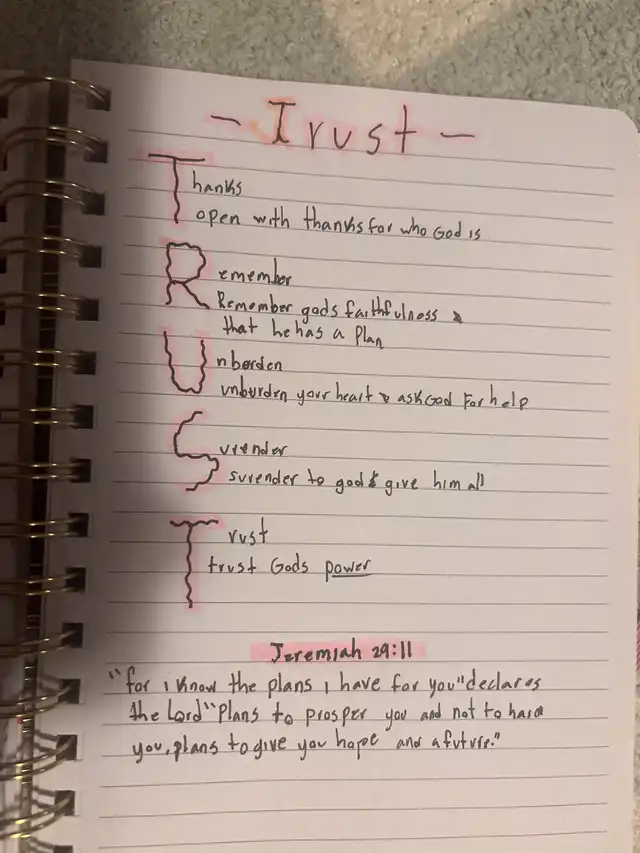 - Trust -
Thanks
open with thanks for who God is
Remember
Remember gods faithfulness &
that he has a Plan
Unborden
unburden your heart & ask God For help
Surender
surender to god & give him all
Trust
trust Gods power
Jeremiah 29:11
"for i know the plans i have for you" declares
the Lord "Plans to prosper you and not to harm
you, plans to give you hope and a future."